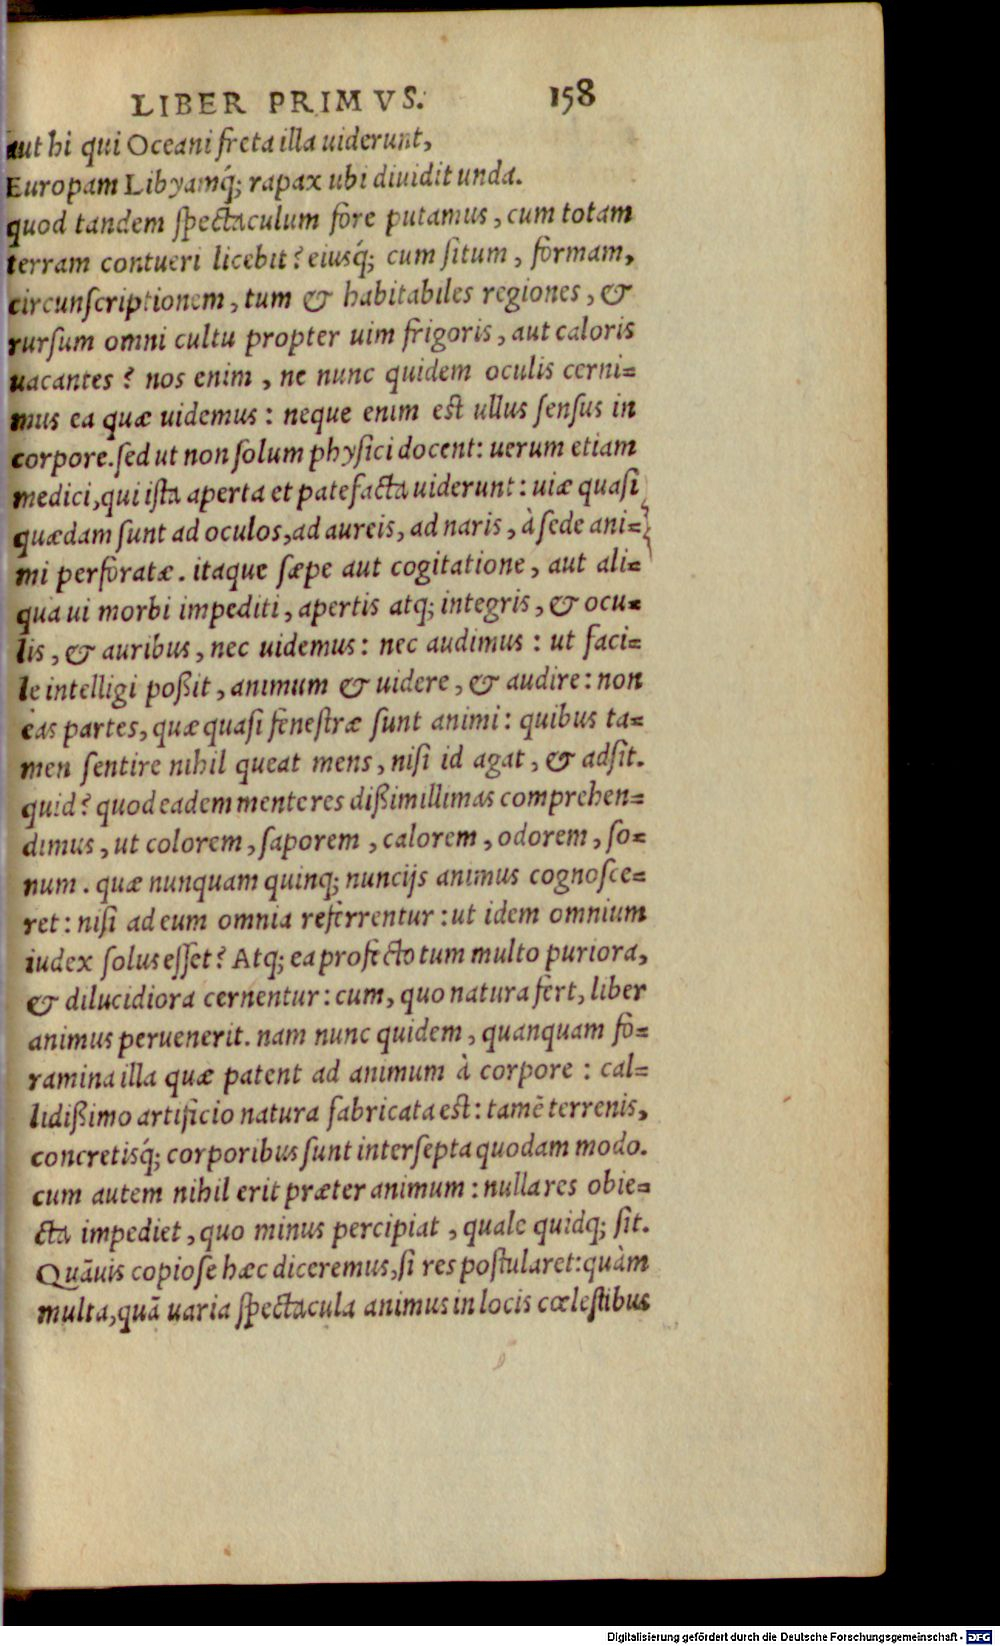 LIBER PRIMVS. 158
aut hi qui Oceani freta illa uiderunt,
Europam Libyamq́; rapax ubi diuidit unda.
quod tandem ſpectaculum fore putamus, cum totam
terram contueri licebit? eiusq́; cum ſitum, formam,
circunſcriptionem, tum & habitabiles regiones, &
rurſum omni cultu propter uim frigoris, aut caloris
uacantes? nos enim, ne nunc quidem oculis cerni=
mus ea quæ uidemus: neque enim est ullus ſenſus in
corpore. ſed ut non ſolum phyſici docent: uerum etiam
medici, qui iſta aperta et patefacta uiderunt: uiæ quaſi
quædam ſunt ad oculos, ad aureis, ad naris, à ſede ani=
mi perforatæ. itaque ſæpe aut cogitatione, aut ali=
qua ui morbi impediti, apertis atq; integris, & ocu=
lis, & auribus, nec uidemus: nec audimus: ut faci=
le intelligi poßit, animum & uidere, & audire: non
eas partes, quæ quaſi feneſtræ ſunt animi: quibus ta=
men ſentire nihil queat mens, niſi id agat, & adſit.
quid? quod eadem mente res dißimillimas comprehen=
dimus, ut colorem, ſaporem, calorem, odorem, ſo=
num. quæ nunquam quinq; nuncijs animus cognoſce=
ret: niſi ad eum omnia referrentur: ut idem omnium
iudex ſolus eſſet? Atq; ea profecto tum multo puriora,
& dilucidiora cernentur: cum, quo natura fert, liber
animus peruenerit. nam nunc quidem, quanquam fo=
ramina illa quæ patent ad animum à corpore: cal=
lidißimo artificio natura fabricata est: tamē terrenis,
concretisq́; corporibus ſunt interſepta quodam modo.
cum autem nihil erit præter animum: nulla res obie=
cta impediet, quo minus percipiat, quale quidq; ſit.
Quāuis copioſe hæc diceremus, ſi res poſtularet: quàm
multa, quā uaria ſpectacula animus in locis cœleſtibus
Digitalisierung gefördert durch die Deutsche Forschungsgemeinschaft - DFG